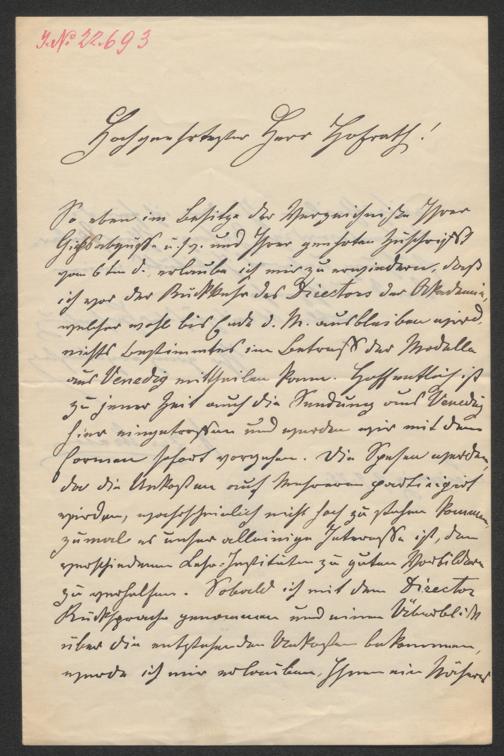 J.No 22.693
Hochgeehrtester Herr Hofrath!
So eben im Besitze der Verzeichnisse Ihrer
Gipsabgüsse u.s.w. und Ihrer geehrten Zuschrift
vom 6ten d. erlaube ich mir zu erwiedern, daß
ich vor der Rückkehr des Directors der Akademie,
welcher wohl bis Ende d. M. ausbleiben wird
nichts bestimmtes im Betreff der Modelle
aus Venedig mittheilen kann. Hoffentlich ist
zu jener Zeit auch die Sendung aus Venedig
hier eingetroffen und werden wir mit dem
Formen sofort vorgehen. Die Spesen werden,
da die Unkosten auf Mehreren participirt
würden, wahrscheinlich nicht hoch zu stehen kommen,
zumal es unser alleinige Interesse ist, den
verschiedenen Lehr-Instituten zu guten Vorbildern
zu verhelfen. Sobald ich mit dem Director
Rücksprache genommen und einen Überblick
über die entstehenden Unkosten bekommen,
werde ich mir erlauben, Ihnen ein Näheres